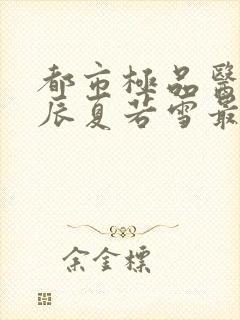 都市極品醫
辰夏若雪最
余金標